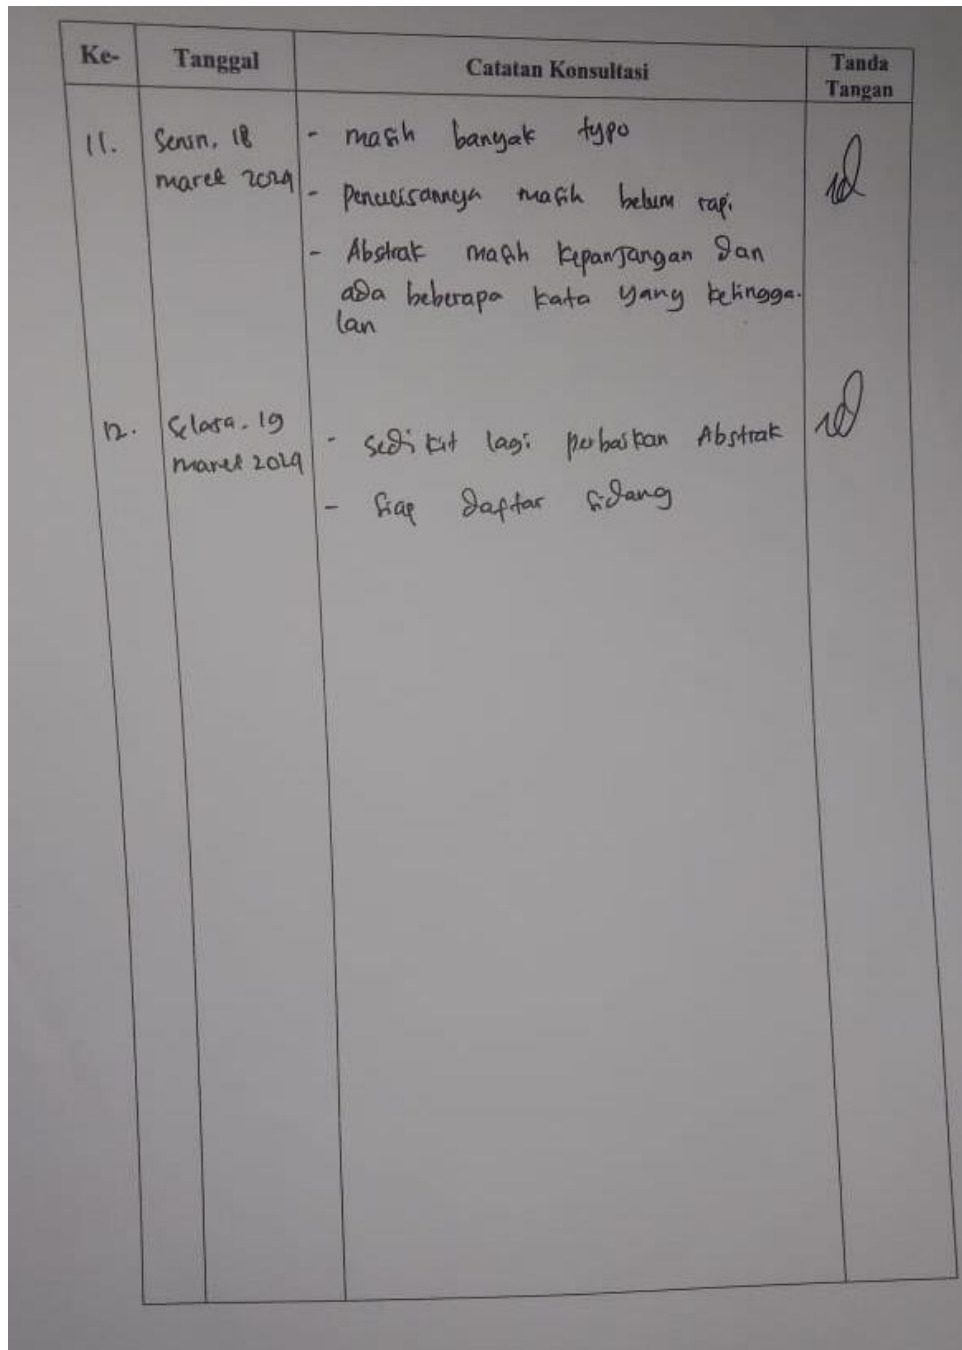 Ke- Tanggal Catatan Konsultasi Tanda Tangan
11. Senin, 18 maret 2024
- masih banyak typo
- Penulisannya masih belum rapi
- Abstrak masih kepanjangan dan
ada beberapa kata yang ketingga-
lan
12. Selasa. 19 maret 2024
- sedikit lagi perbaikan Abstrak
- Siap daftar sidang